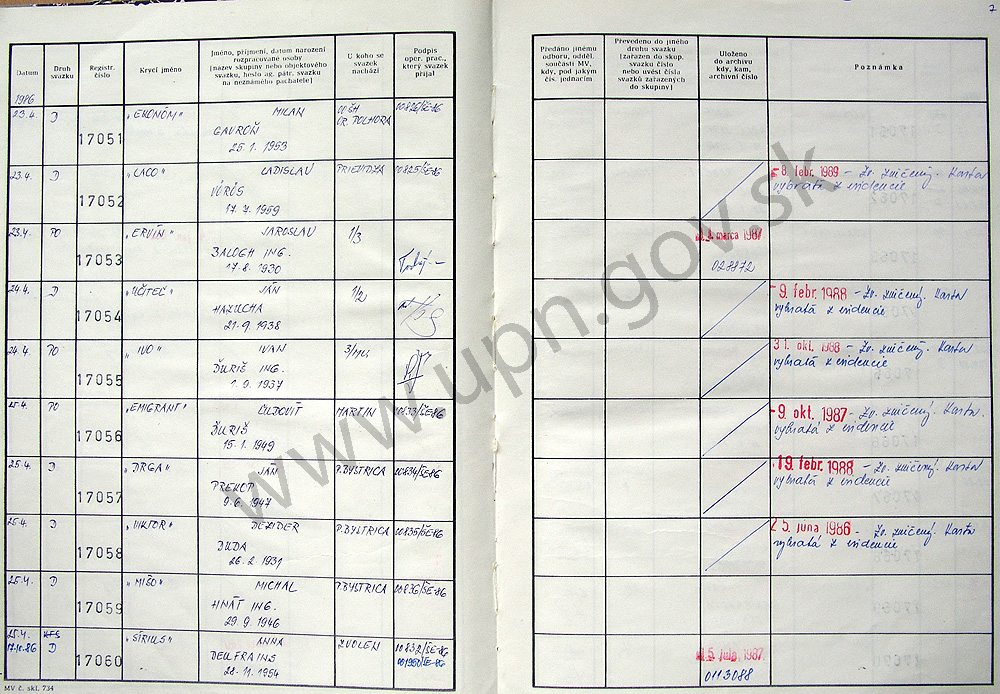 7
Datum
Druh svazku
Registr. číslo
Krycí jméno
Jméno, příjmení, datum narození
rozpracované osoby
(název skupiny nebo objektového
svazku, heslo ag. pátr. svazku
na neznámého pachatele)
U koho se
svazek
nachází
Podpis
oper. prac.,
který svazek
přijal
Předáno jinému
odboru, odděl.
součásti MV,
kdy, pod jakým
čís. jednacím
Převedeno do jiného
druhu svazku
(zařazen do skup.
svazku číslo
nebo uvést čísla
svazků zařazených
do skupiny)
Uloženo
do archivu
kdy, kam,
archivní číslo
Poznámka
1986
23.4. D 17051 "EKONÓM" MILAN
GAVROŇ
25.1.1953
OR. POLHORA
00826/ŠE-86
23.4. D 17052 "LACO" LADISLAV
VÖRÖS
17.7.1959
PRIEVIDZA 00825/ŠE-86
8. febr. 1989 - Zv. zničený. Karta
vybratá z evidencie
23.4. PO 17053 "ERVÍN" JAROSLAV
BALOGH ING.
17.8.1930
1/3
marca 1987
028872
24.4. D 17054 "UČITEĽ" JÁN
HAZUCHA
21.9.1938
1/2
-9. febr. 1988 - Zv. zničený. Karta
vybratá z evidencie
24.4. PO 17055 "IVO" IVAN
ĎURIŠ ING.
1.9.1937
31. okt. 1988 - Zv. zničený. Karta
vybratá z evidencie
25.4. PO 17056 "EMIGRANT" ĽUDOVÍT
ĎURIŠ
15.1.1949
MARTIN 00833/ŠE-86
-9. okt. 1987 - Zv. zničený. Karta
vybratá z evidencie
25.4. D 17057 "DRGA" JÁN
PREKOP
9.6.1947
P.BYSTRICA 00834/ŠE-86
19. febr. 1988 - Zv. zničený. Karta
vybratá z evidencie
25.4. D 17058 "VIKTOR" DEZIDER
DUDA
26.2.1931
P.BYSTRICA 00835/ŠE-86
25. júna 1986 - Zv. zničený. Karta
vybratá z evidencie
25.4. D 17059 "MIŠO" MICHAL
HNÁT ING.
29.9.1946
P.BYSTRICA 00836/ŠE-86
25.4. 17060 "SÍRIUS" ANNA
17.10.86 D
DEUFRAINS
28.11.1954
ZVOLEN 00832/ŠE-86
001950/ŠE-86
5. júla 1987
0113088
MV č. skl. 734
www.upn.gov.sk